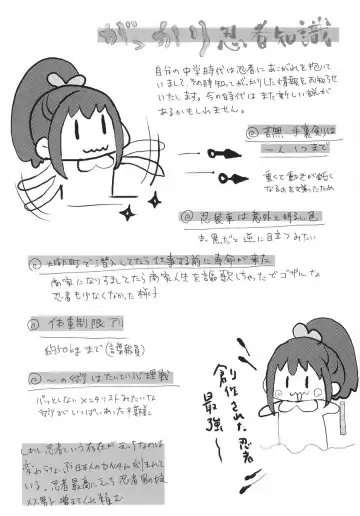 がっかり忍者知識
自分の中学時代は忍者にあこがれを抱いて
いまして、その時知ってがっかりした情報をお知らせ
いたします。今の時代はまた新しい説が
あるかもしれません。
苦無、手裏剣は
一人1つまで
重くて動きが鈍く
なるのを嫌ったため
忍装束は意外と明るい色
真っ黒だと逆に目立つみたい
城下町で潜入してたら仕事する前に寿命が来た
商家になりすましてたら商家人生を謳歌しちゃったでゴザルな
忍者も少なくなかった様子
体重制限アリ
約50kgまで
〜の術はたいてい心理戦
パッとしないメンタリストみたいな
術がいっぱいあった
創作された忍者
最強〜
しかし忍者という存在が
変わりない。日本人のDNAに刻まれて
いる。忍者最高